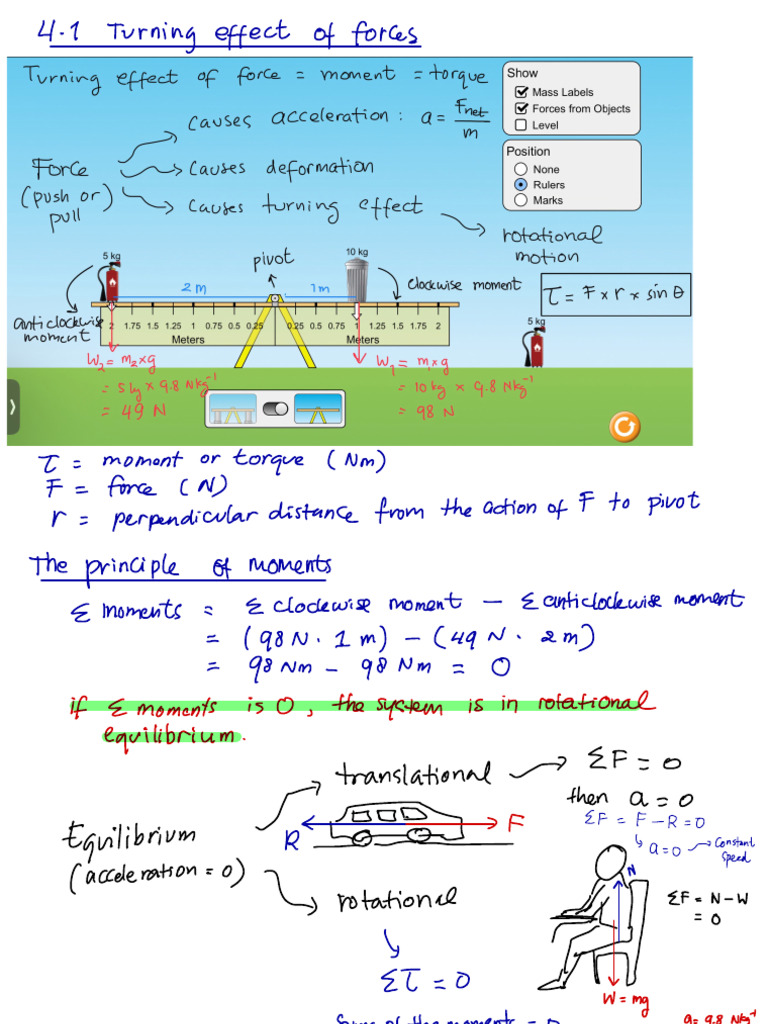 4.1 Turning effect of forces
Turning effect of force = moment = torque
Show
Mass Labels
Forces from Objects
Level
Position
None
Rulers
Marks
Force
(push or
pull
)
causes acceleration : a = Fnet/m
causes deformation
causes turning effect
rotational
motion
5 kg
pivot
10 kg
2 m
1 m
clockwise moment
τ = F × r × sin θ
anticlockwise
moment
2 1.75 1.5 1.25 1 0.75 0.5 0.25 0.25 0.5 0.75 1 1.25 1.5 1.75 2
Meters Meters
5 kg
W₂ = m₂×g
= 5 kg × 9.8 Nkg⁻¹
= 49 N
W₁ = m₁×g
= 10 kg × 9.8 Nkg⁻¹
= 98 N
τ = moment or torque (Nm)
F = force (N)
r = perpendicular distance from the action of F to pivot
The principle of moments
Σ moments = Σ clockwise moment − Σ anticlockwise moment
= (98 N · 1 m) − (49 N · 2 m)
= 98 Nm − 98 Nm = 0
if Σ moments is 0, the system is in rotational
equilibrium.
Equilibrium
(acceleration = 0)
translational
ΣF = 0
then a = 0
ΣF = F − R = 0
a = 0 → Constant
Speed
R
F
rotational
Στ = 0
N
ΣF = N − W
= 0
W = mg
Sum of the moments = 0
g = 9.8 Nkg⁻¹